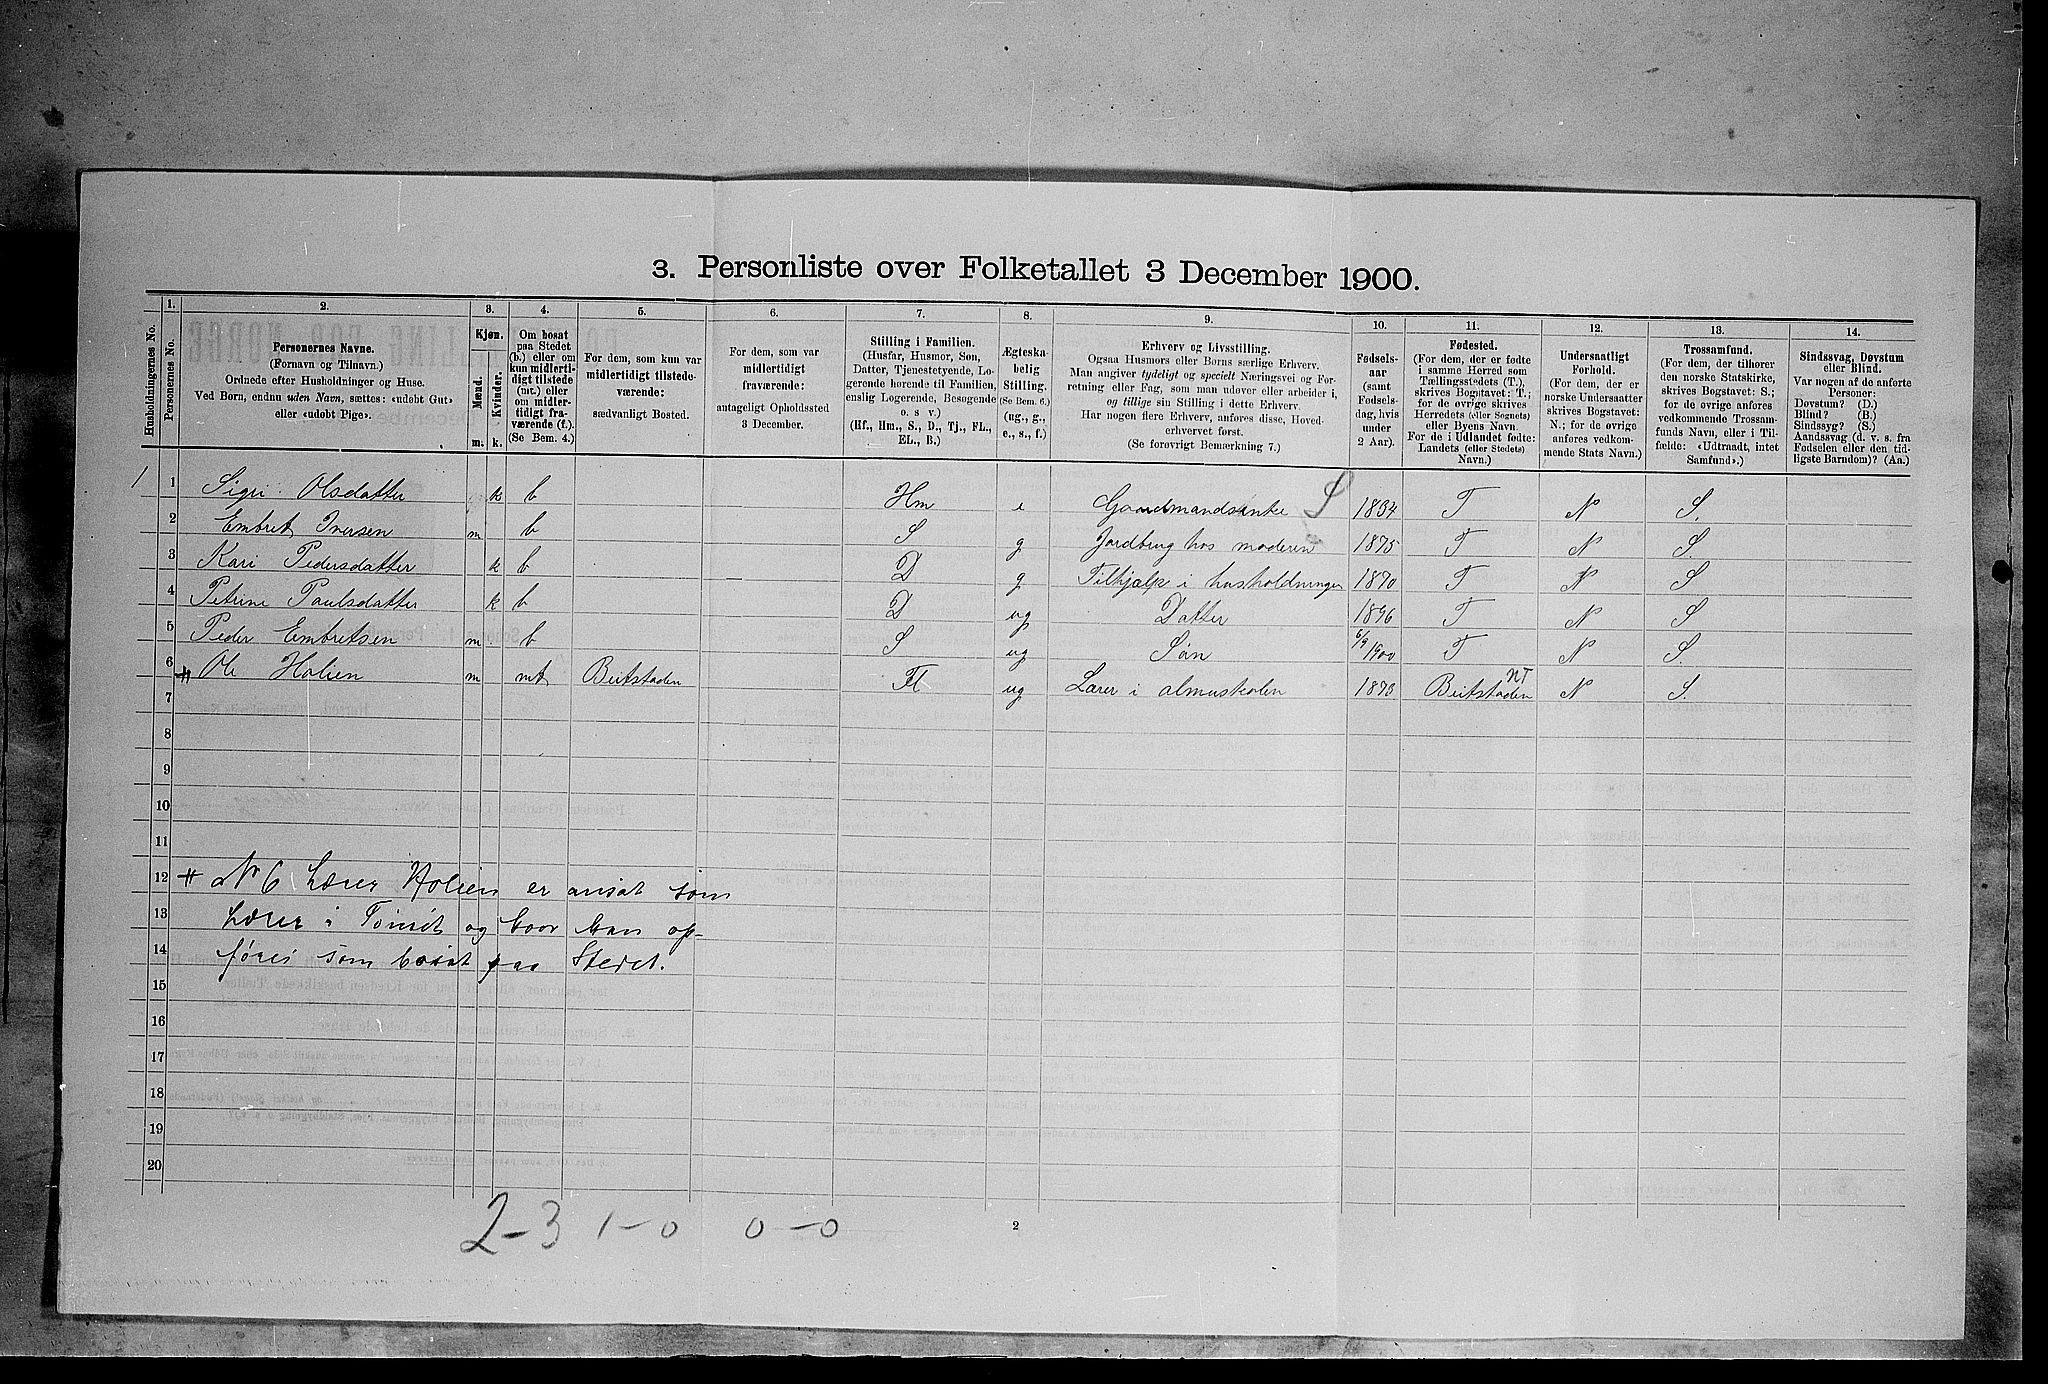 3. Personliste over Folketallet 3 December 1900.
1. 2. 3. 4. 5. 6. 7. 8. 9. 10. 11. 12. 13. 14.
Husholdningernes No.
Personernes No.
Personernes Navne.
(Fornavn og Tilnavn.)
Ordnede efter Husholdninger og Huse.
Ved Børn, endnu uden Navn, sættes: «udøbt Gut»
eller «udøbt Pige».
Kjøn.
Mænd.
Kvinder.
m. k.
Om bosat
paa Stedet
(b.) eller om
kun midlerti-
digt tilstede
(mt.) eller
om midler-
tidigt fra-
værende (f.)
(Se Bem. 4.)
For dem, som kun var
midlertidigt tilstede-
værende:
sædvanligt Bosted.
For dem, som var
midlertidigt
fraværende:
antageligt Opholdssted
3 December.
Stilling i Familien.
(Husfar, Husmor, Søn,
Datter, Tjenestetyende, Lo-
gerende hørende til Familien,
enslig Logerende, Besøgende
o. s v.)
(Hf., Hm., S., D., Tj., FL.,
EL., B.)
Ægteska-
belig
Stilling.
(Se Bem. 6.)
(ug., g.,
e., s., f.)
Erhverv og Livsstilling.
Ogsaa Husmors eller Børns særlige Erhverv.
Man angiver tydeligt og specielt Næringsvei og For-
retning eller Fag, som man udøver eller arbeider i,
og tillige sin Stilling i dette Erhverv.
Har nogen flere Erhverv, anføres disse, Hoved-
erhvervet først.
(Se forøvrigt Bemærkning 7.)
Fødsels-
aar
(samt
Fødsels-
dag, hvis
under
2 Aar).
Fødested.
(For dem, der er fødte
i samme Herred som
Tællingsstedets (T.),
skrives Bogstavet: T.;
for de øvrige skrives
Herredets (eller Sognets)
eller Byens Navn.
For de i Udlandet fødte:
Landets (eller Stedets)
Navn.)
Undersaatligt
Forhold.
(For dem, der er
norske Undersaatter
skrives Bogstavet:
N.; for de øvrige
anføres vedkom-
mende Stats Navn.)
Trossamfund.
(For dem, der tilhører
den norske Statskirke,
skrives Bogstavet: S.;
for de øvrige anføres
vedkommende Trossam-
funds Navn, eller i Til-
fælde: «Udtraadt, intet
Samfund».)
Sindssvag, Døvstum
eller Blind.
Var nogen af de anførte
Personer:
Døvstum? (D.)
Blind? (B.)
Sindssyg? (S.)
Aandssvag (d. v. s. fra
Fødselen eller den tid-
ligste Barndom)? (Aa.)
1 1 Sigri Olsdatter k b Hm e Gaardmandsenke S 1834 T N S.
2 Embret Iversen m b S g Jordbrug hos moderen 1875 T N S.
3 Kari Pedersdatter k b D g Tilhjælp i husholdningen 1870 T N S
4 Petrine Paulsdatter k b D ug Datter 1896 T N S
5 Peder Embretsen m b S ug Søn 6/9 1900 T N S.
6 # Ole Holien m mt Beitstaden Fl ug Lærer i almuskolen 1873 Beitstaden NT N S.
7
8
9
10
11
12 # Nr 6 Lærer Holien er ansat som
13 Lærer i Tønset og bør han op-
14 føres som bosat paa Stedet.
15
16
17
18
19
20
2-3 1-0 0-0
2